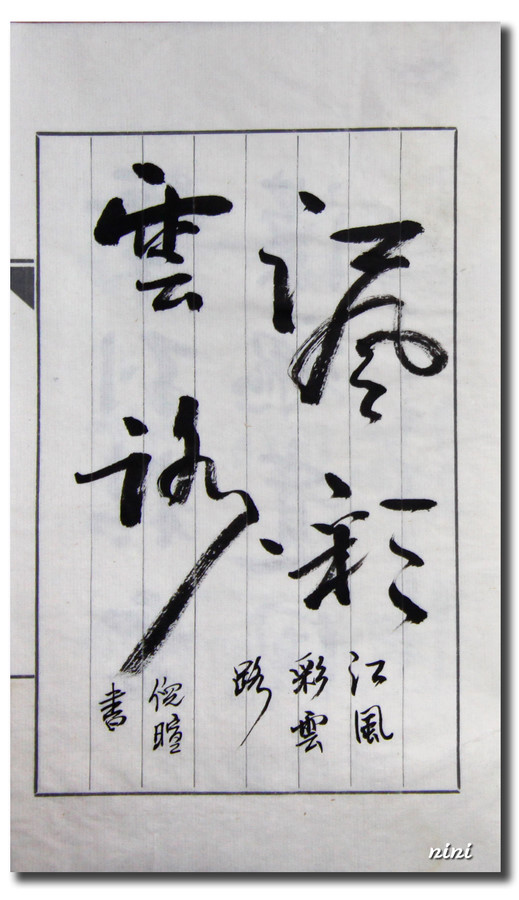 江風彩
雲路
江風
彩雲
路
倪暄
書
nini